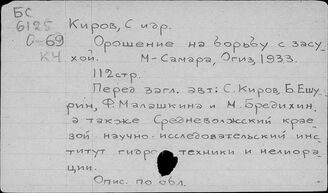 БС
6125
О-69
КЧ
Киров, С и др.
Орошение на борьбу с засу
хой. М-Самара, Огиз, 1933.
112стр.
Перед загл. авт: С. Киров, Б. Ешу
рин, Ф. Малашкина и М. Бредихин.
а также Средневолжский крае
вой научно-исследовательский инс
титут гидро техники и мелиора
ции.
Опис. по обл.